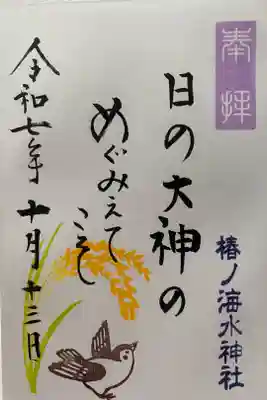 奉拝
椿ノ海水神社
日の大神の
めぐみえて
こそ
令和七年 十月 十三日